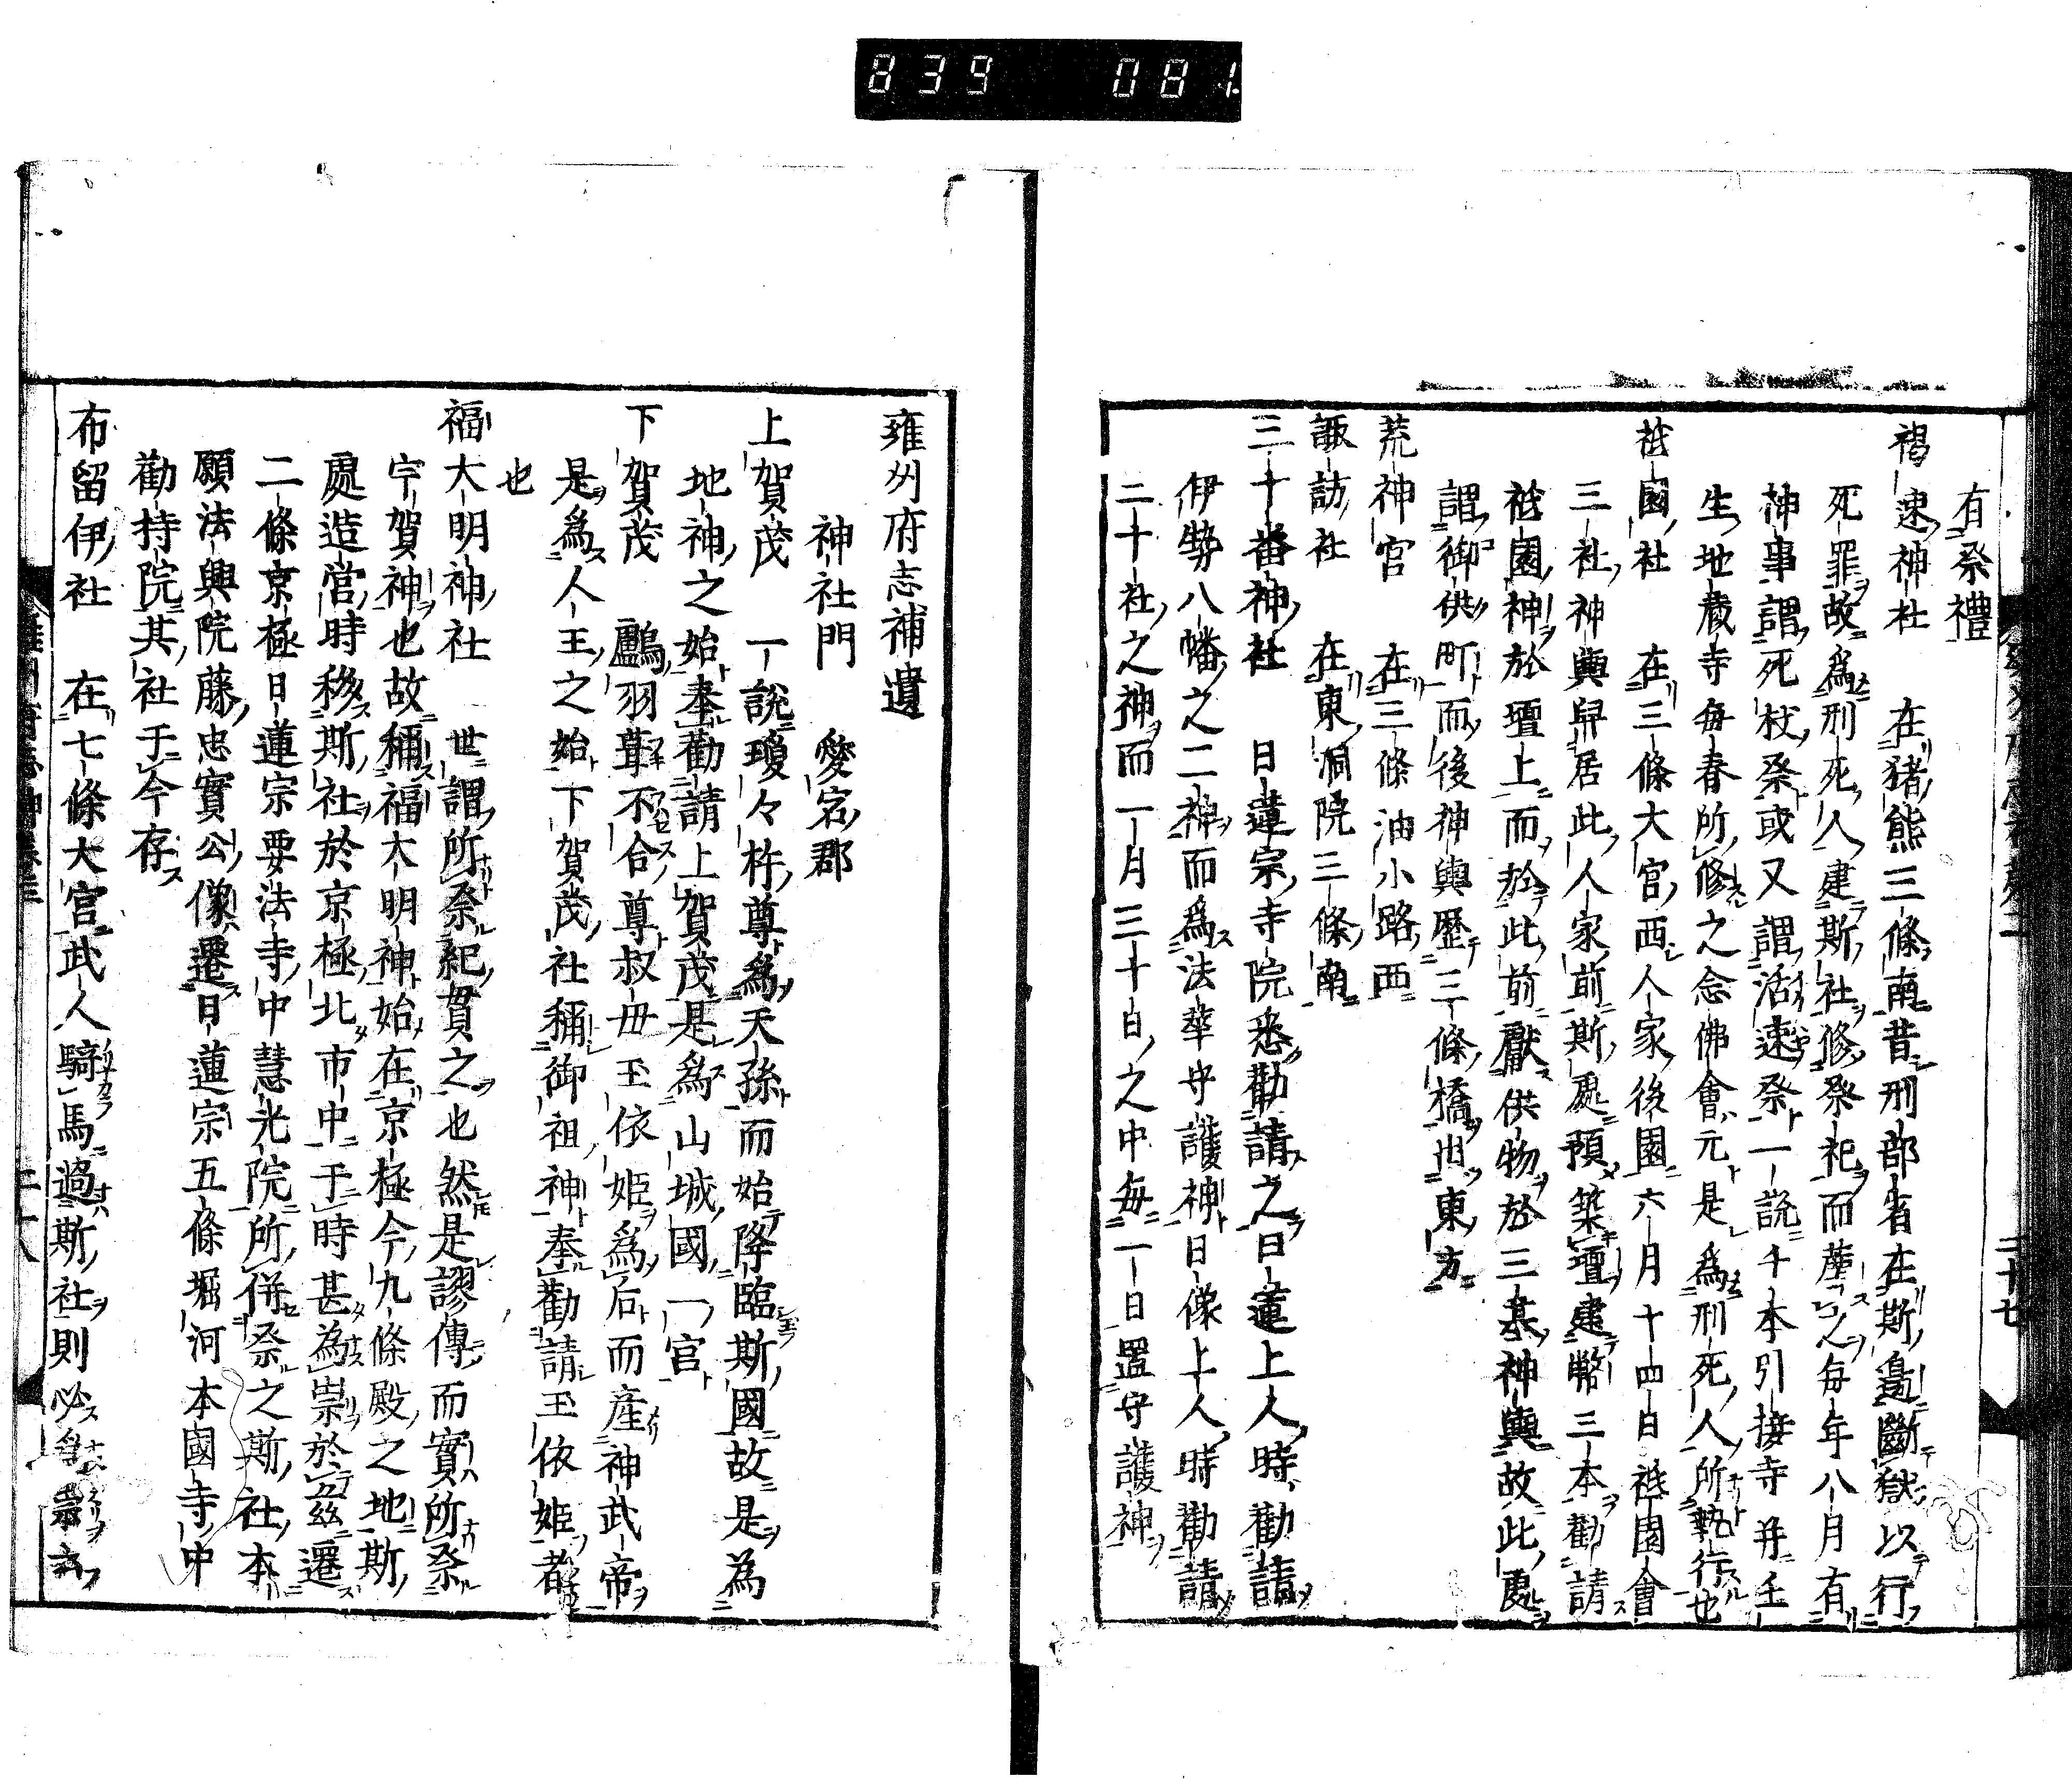 839 081
有祭禮
褐速神社 在猪熊三條南昔刑部省在斯邊斷獄以行
死罪故爲刑死人建斯社修祭祀而薩之每年八月有
神事謂死杖祭或又謂活速祭一說千本引接寺并壬
生地藏寺每春所修之念佛會元是爲刑死人所執行也
祇園社 在三條大宮西人家後園六月十四日祗園會
三社神輿舁居此人家前斯處預築壇建幣三本勸請
祗園神於壇上而於此前獻供物於三基神輿故此處
謂御供町而後神輿歷三條橋出東方
荒神宮 在三條油小路西
諏訪社 在東洞院三條南
三十番神社 日蓮宗寺院悉勸請之日蓮上人時勸請
伊勢八幡之二神而爲法華守護神日像上人時勸請
二十社之神而一月三十日之中每一日置守護神
二十七
雍州府志補遺
神社門 愛宕郡
上賀茂 一說瓊々杵尊爲天孫而始降臨斯國故是為
地神之始奉勸請上賀茂是爲山城國一宮
下賀茂 鸕羽葺不合尊叔母玉依姬爲后而產神武帝
是爲人王之始下賀茂社稱御祖神奉勸請玉依姬者
也
福大明神社 世謂所祭紀貫之也然是謬傳而實所祭
宇賀神也故稱福大明神始在京極今九條殿之地斯
處造営時移斯社於京極北市中于時甚為崇於茲遷
二條京極日蓮宗要法寺中慧光院所併祭之斯社本
願法興院藤忠實公像遷日蓮宗五條堀河本國寺中
勸持院其社于今存
布留伊社 在七條大宮武人騎馬過斯社則必